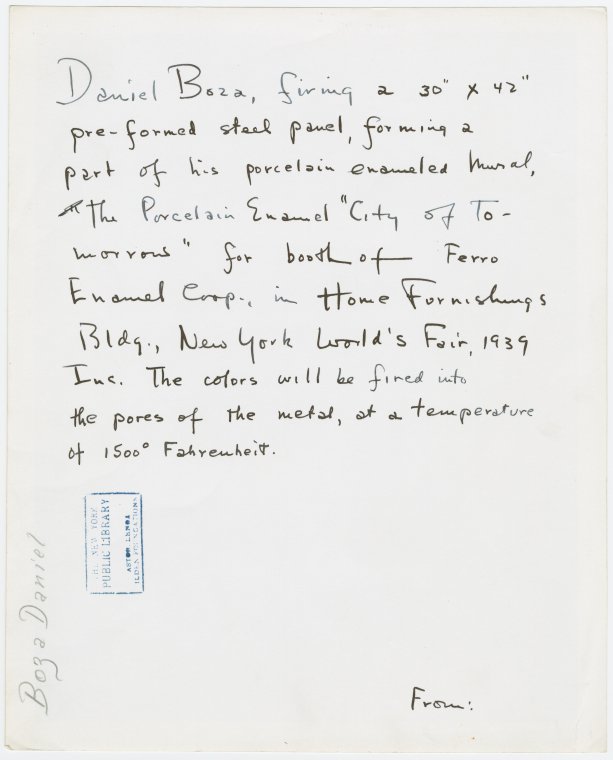 Daniel Boza, firing a 30" x 42"
pre-formed steel panel, forming a
part of his porcelain enameled mural,
"The Porcelain Enamel "City of To-
morrow" for booth of Ferro
Enamel Corp., in Home Furnishings
Bldg., New York World's Fair, 1939
Inc. The colors will be fired into
the pores of the metal, at a temperature
of 1500° Fahrenheit.
THE NEW YORK
PUBLIC LIBRARY
ASTOR LENOX
TILDEN FOUNDATIONS
Boza Daniel
From: